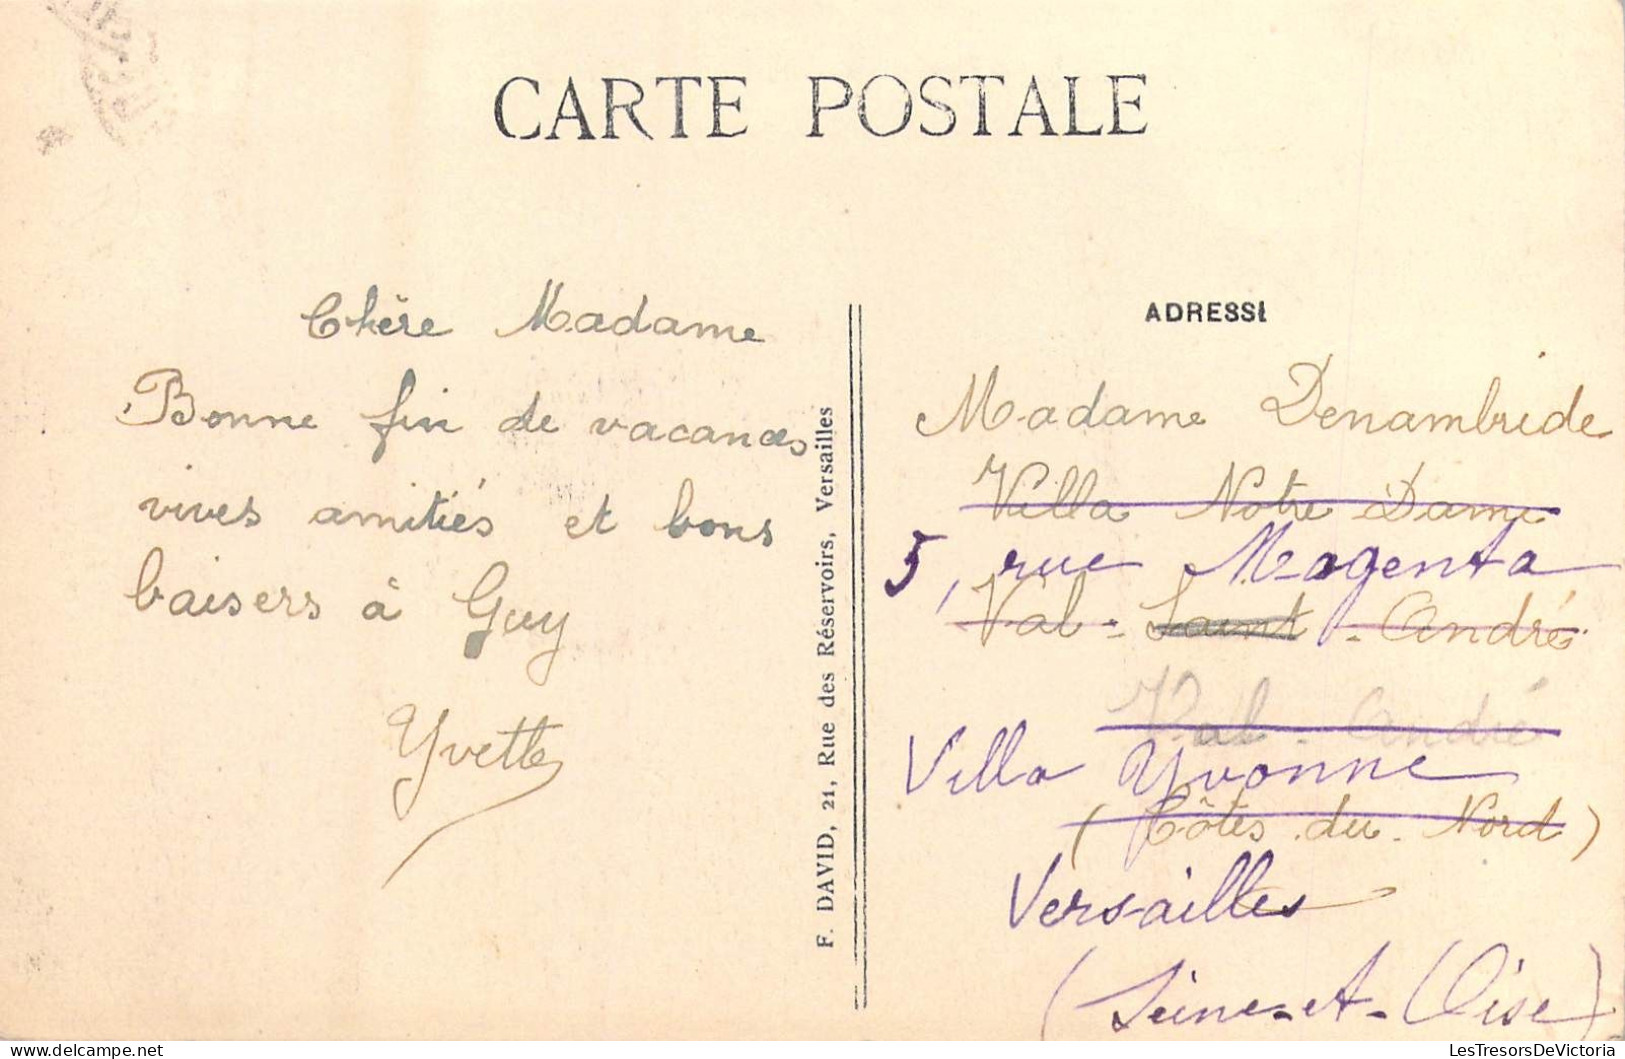 CARTE POSTALE
Chère Madame
Bonne fin de vacances
vives amitiés et bons
baisers à Guy
Yvette
F. DAVID, 21, Rue des Réservoirs, Versailles
ADRESSE
Madame Denambride
Villa Notre Dame
5, rue Magenta
Val-Saint-André
Val-André
Villa Yvonne
(Côtes du Nord)
Versailles
(Seine-et-Oise)
LesTresorsDeVictoria